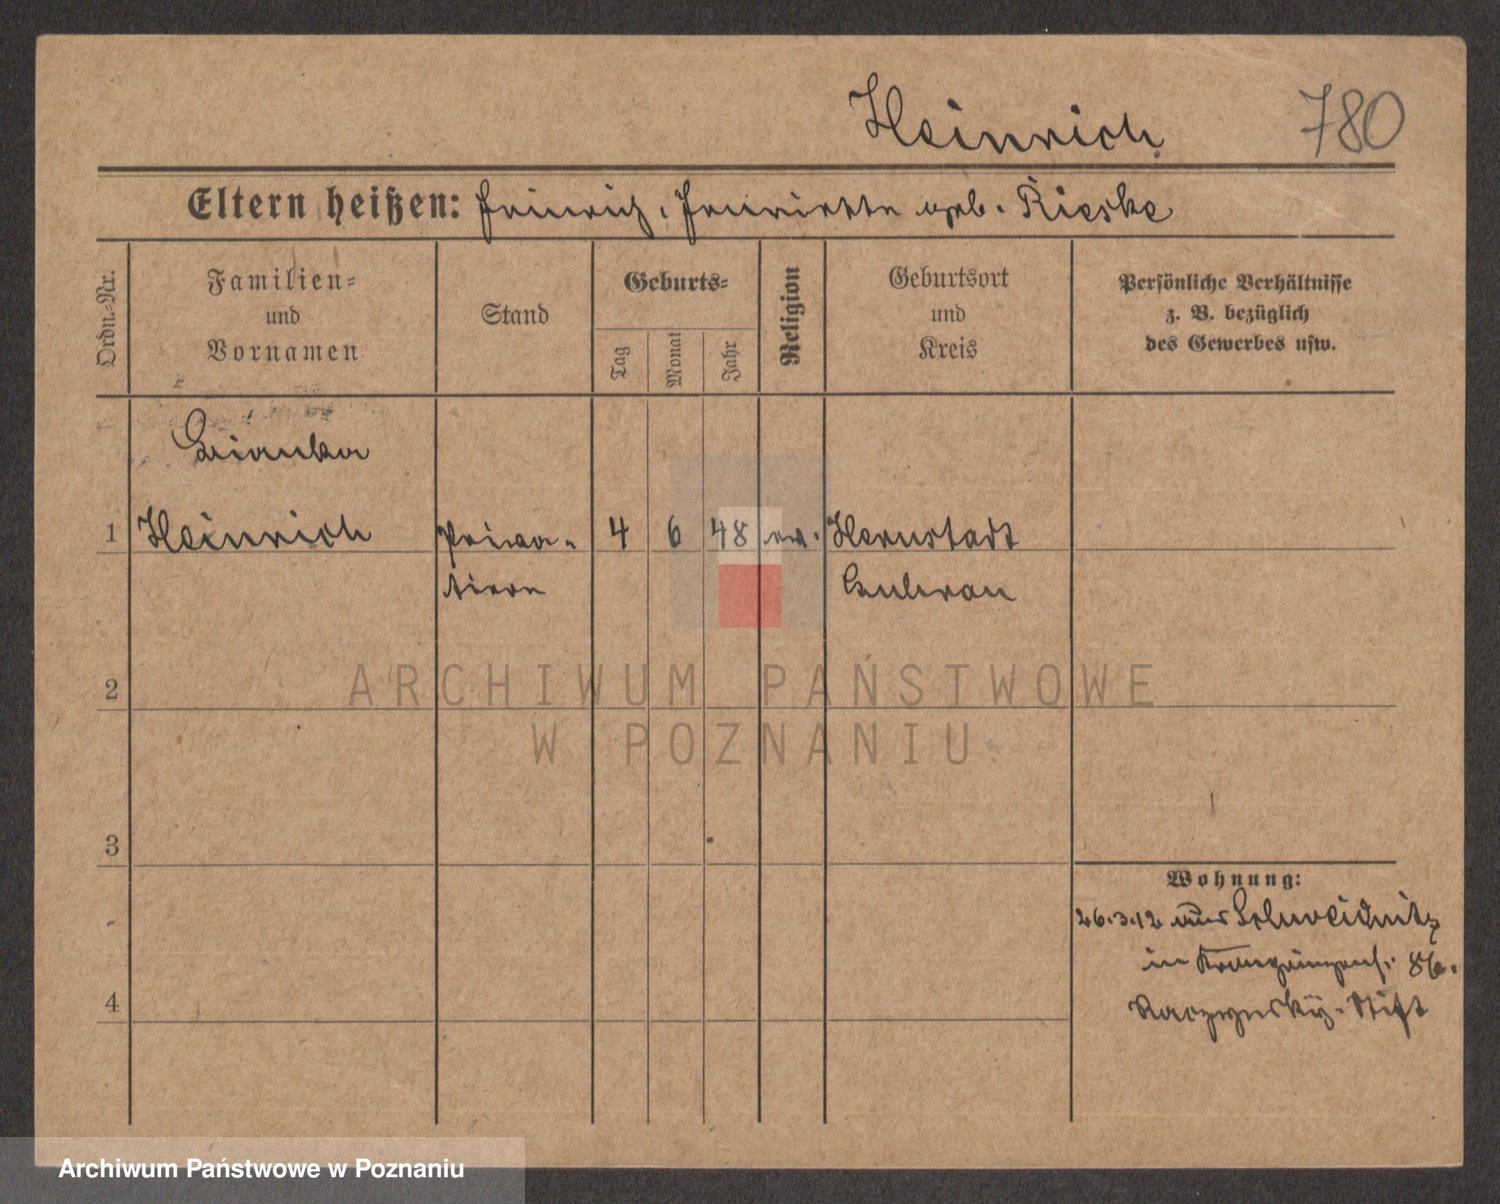 Heinrich 780
Eltern heißen: Heinrich, Henriette geb. Rieske
Ordn.-Nr.
Familien=
und
Vornamen
Stand
Geburts=
Tag
Monat
Jahr
Religion
Geburtsort
und
Kreis
Persönliche Verhältnisse
z. B. bezüglich
des Gewerbes usw.
Bianka
1 Heinrich Priva- 4 6 48 ev. Hernstadt
tiere Guhrau
2
3
4
Wohnung:
26.3.12 aus Schweidnitz
in 86.
Raczynsky-Stift
ARCHIWUM PAŃSTWOWE
W POZNANIU
Archiwum Państwowe w Poznaniu